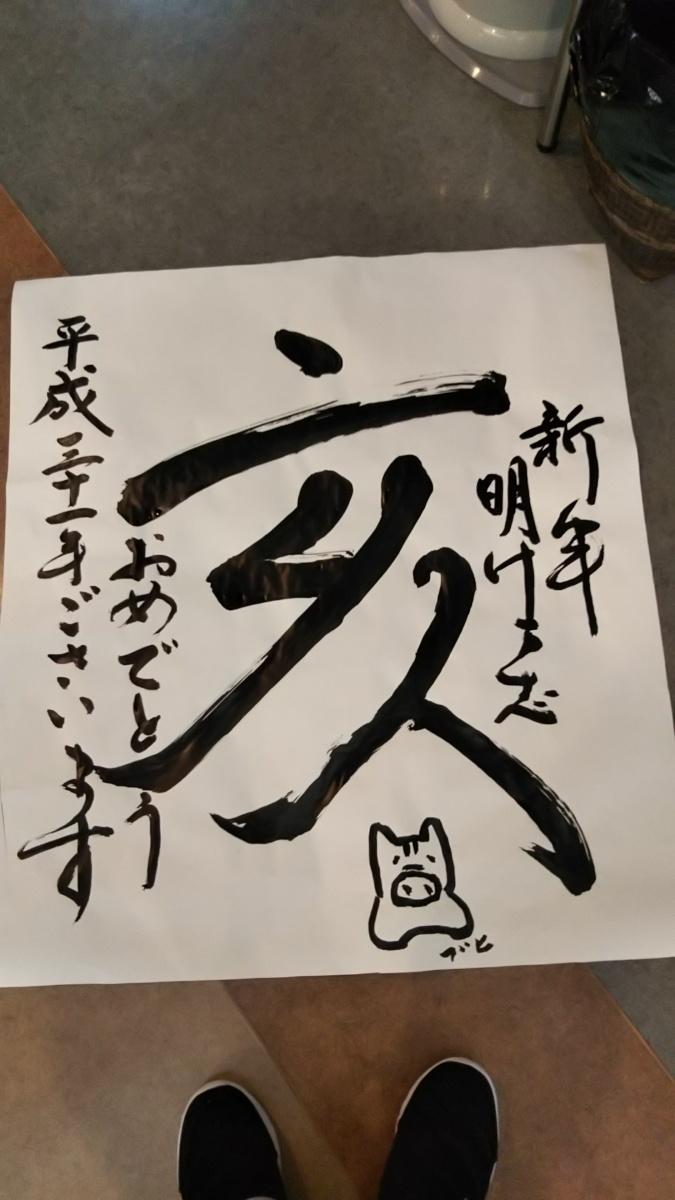 新年
明け
亥
おめでとう
平成三十一年ございます
ブヒ